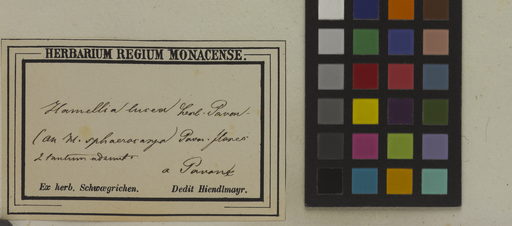 HERBARIUM REGIUM MONACENSE.
Hamellia lucea herb. Pavon.
(an H. sphaerocarpa Pavon. flores
2 tantum
a Pavon
Ex herb. Schwægrichen. Dedit Hiendlmayr.